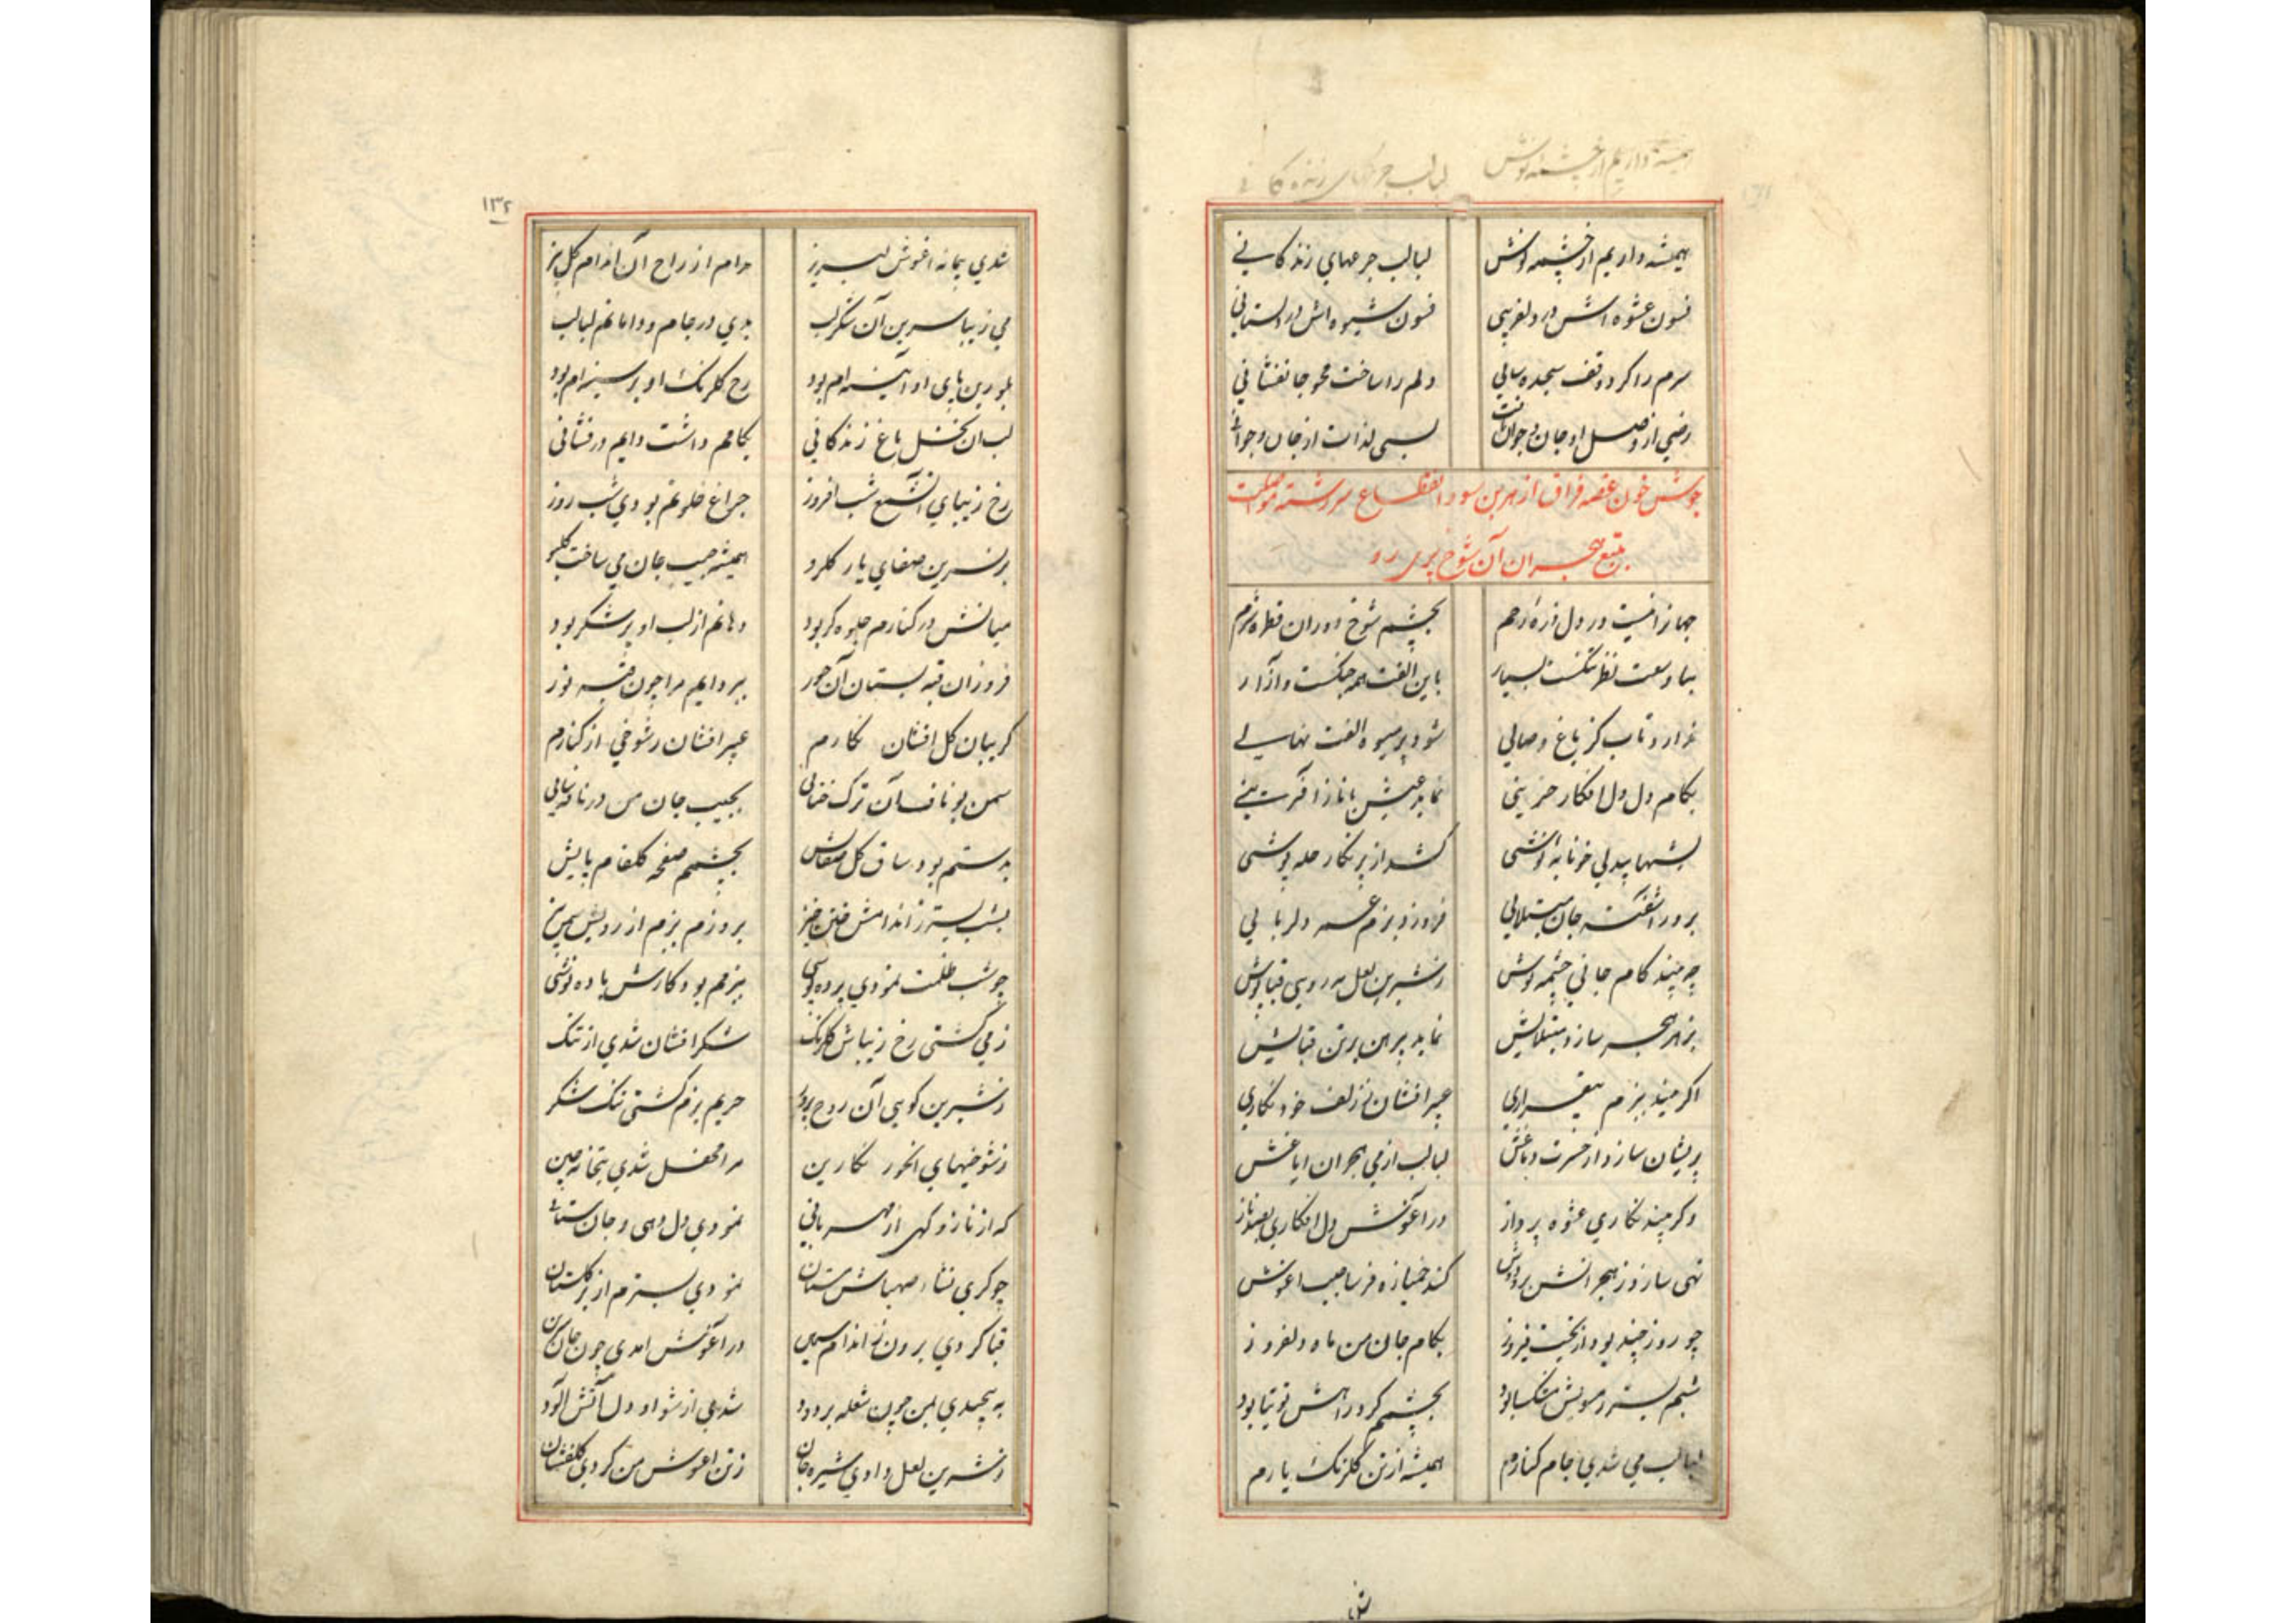 همیشه داریم از چشمه نوش لبالب جرعهای زنده کانی
۱۳۱
همیشه داریم از چشمه نوش لبالب جرعهای زندکانی
فسون عشوه اش در دلفریبی فسون شیوه اش در دلستانی
سرم را کرد وقف سجده سایی دلم را ساخت محو جانفشانی
از وصل او جان و جوانی بسی لذات از جان و جوانی
جوش خون غصه فراق از هر بن مو و انقطاع سررشته مواصلت
بتیغ هجران آن شوخ پری رو
جهانرا نیست در دل ذره رحم بچشم شوخ دوران قطره شرم
وسعت نظر تنکست بسیار باین الفت همه جنکست و آزار
ندارد تاب کز باغ وصالی شود پر میوه الفت نهالی
بکام دل دل افکار حزینی نماید عیش با نازآفرینی
بشبها بیدلی خونابه نوشی کشد از بر نکار حله پوشی
برد آشفته جان مبتلایی فروزد بزم دلربایی
چو بیند کام جانی چشمه نوش ز شیرین لعل مه رویی قباپوش
بزهر هجر سازد مبتلایش نماید پیرهن بر تن قبایش
اکر بیند ببزم بیقراری عبیر افشان ز زلف خود نکاری
پریشان سازد از حسرت دماغش لبالب از می هجران ایاغش
وکر بیند نکاری عشوه پرداز در آغوش دل افکاری بصد ناز
تهی سازد ز هجرانش بر و دوش کند خمیازه فرسا جیب اغوش
چو روز چند بود از بخت فیروز بکام جان من ماه دلفروز
شبم بستر ز مویش مشکسا بود بچشمم کرد راهش توتیا بود
لبالب می شدی جام کنارم همیشه از تن کلرنک یارم
۱۳۲
شدی پیمانه اغوش لبریز مدام از راح آن اندام کل بیز
می زیبا سرین آن شکر لب بدی در جام و دامانم لبالب
بلورین پای او آیینه ام بود رخ کلرنک او بر سینه ام بود
لب آن نخل باغ زندکانی بکامم داشت دایم درفشانی
رخ زیبای آن شمع شب افروز چراغ خلوتم بودی شب روز
بر نسرین صفای یار کلرو همیشه جیب جان می ساخت کلبو
میانش در کنارم جلوه کر بود دهانم از لب او پر شکر بود
فروزان قبه پستان آن حور ببر دایم مرا چون قبه نور
کریبان کل افشان نکارم عبیر افشان ز شوخی از کنارم
سمن بو ناف آن ترک ختایی بجیب جان من در نافه سایی
بدستم بود ساق کل صفایش بچشمم صفحه کلفام پایش
بشب بستر ز اندامش ختن خیز بروزم بزم از رویش
چو شب ظلمت نمودی پرده پوشی ببزمم بود کارش باده نوشی
ز می کشتی رخ زیباش کلرنک شکرافشان شدی از تنک
ز شیرین کویی آن روح پرور حریم بزم کشتی تنک شکر
ز شوخیهای آن حور نکارین مرا محفل شدی بتخانه چین
که از ناز و کهی از مهربانی نمودی دل دهی و جان ستانی
چو کردی نشاء صهباش مستان نمودی بسترم از بر کلستان
قبا کردی برون ز اندام سیمین در آغوش آمدی چون جان
به پیچیدی بمن چون شعله بر دود شدی از او دل آتش آلود
ز شیرین لعل دادی شیره جان ز تن اغوش من کردی کلفشان